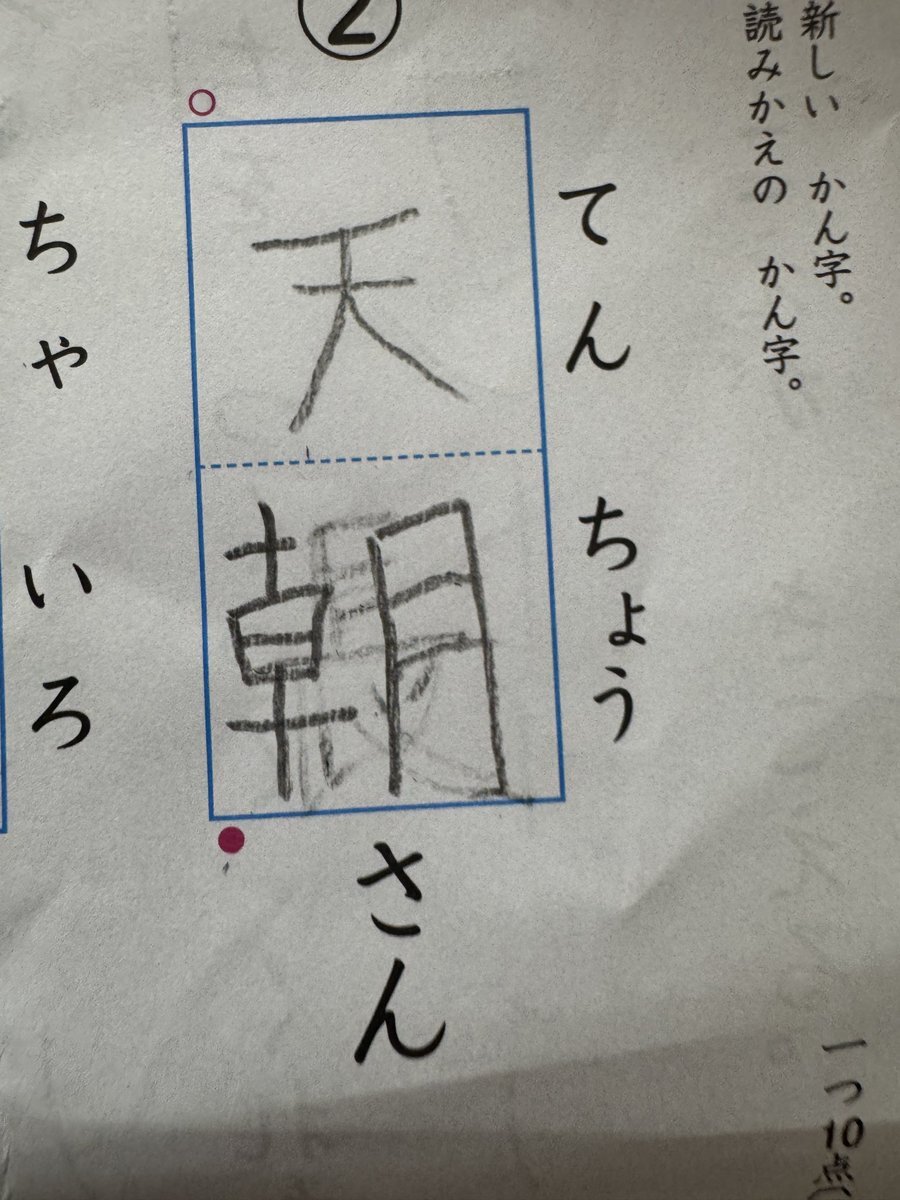 新しい かん字。
読みかえの かん字。
一つ10点
②
てんちょうさん
天朝
ちゃいろ